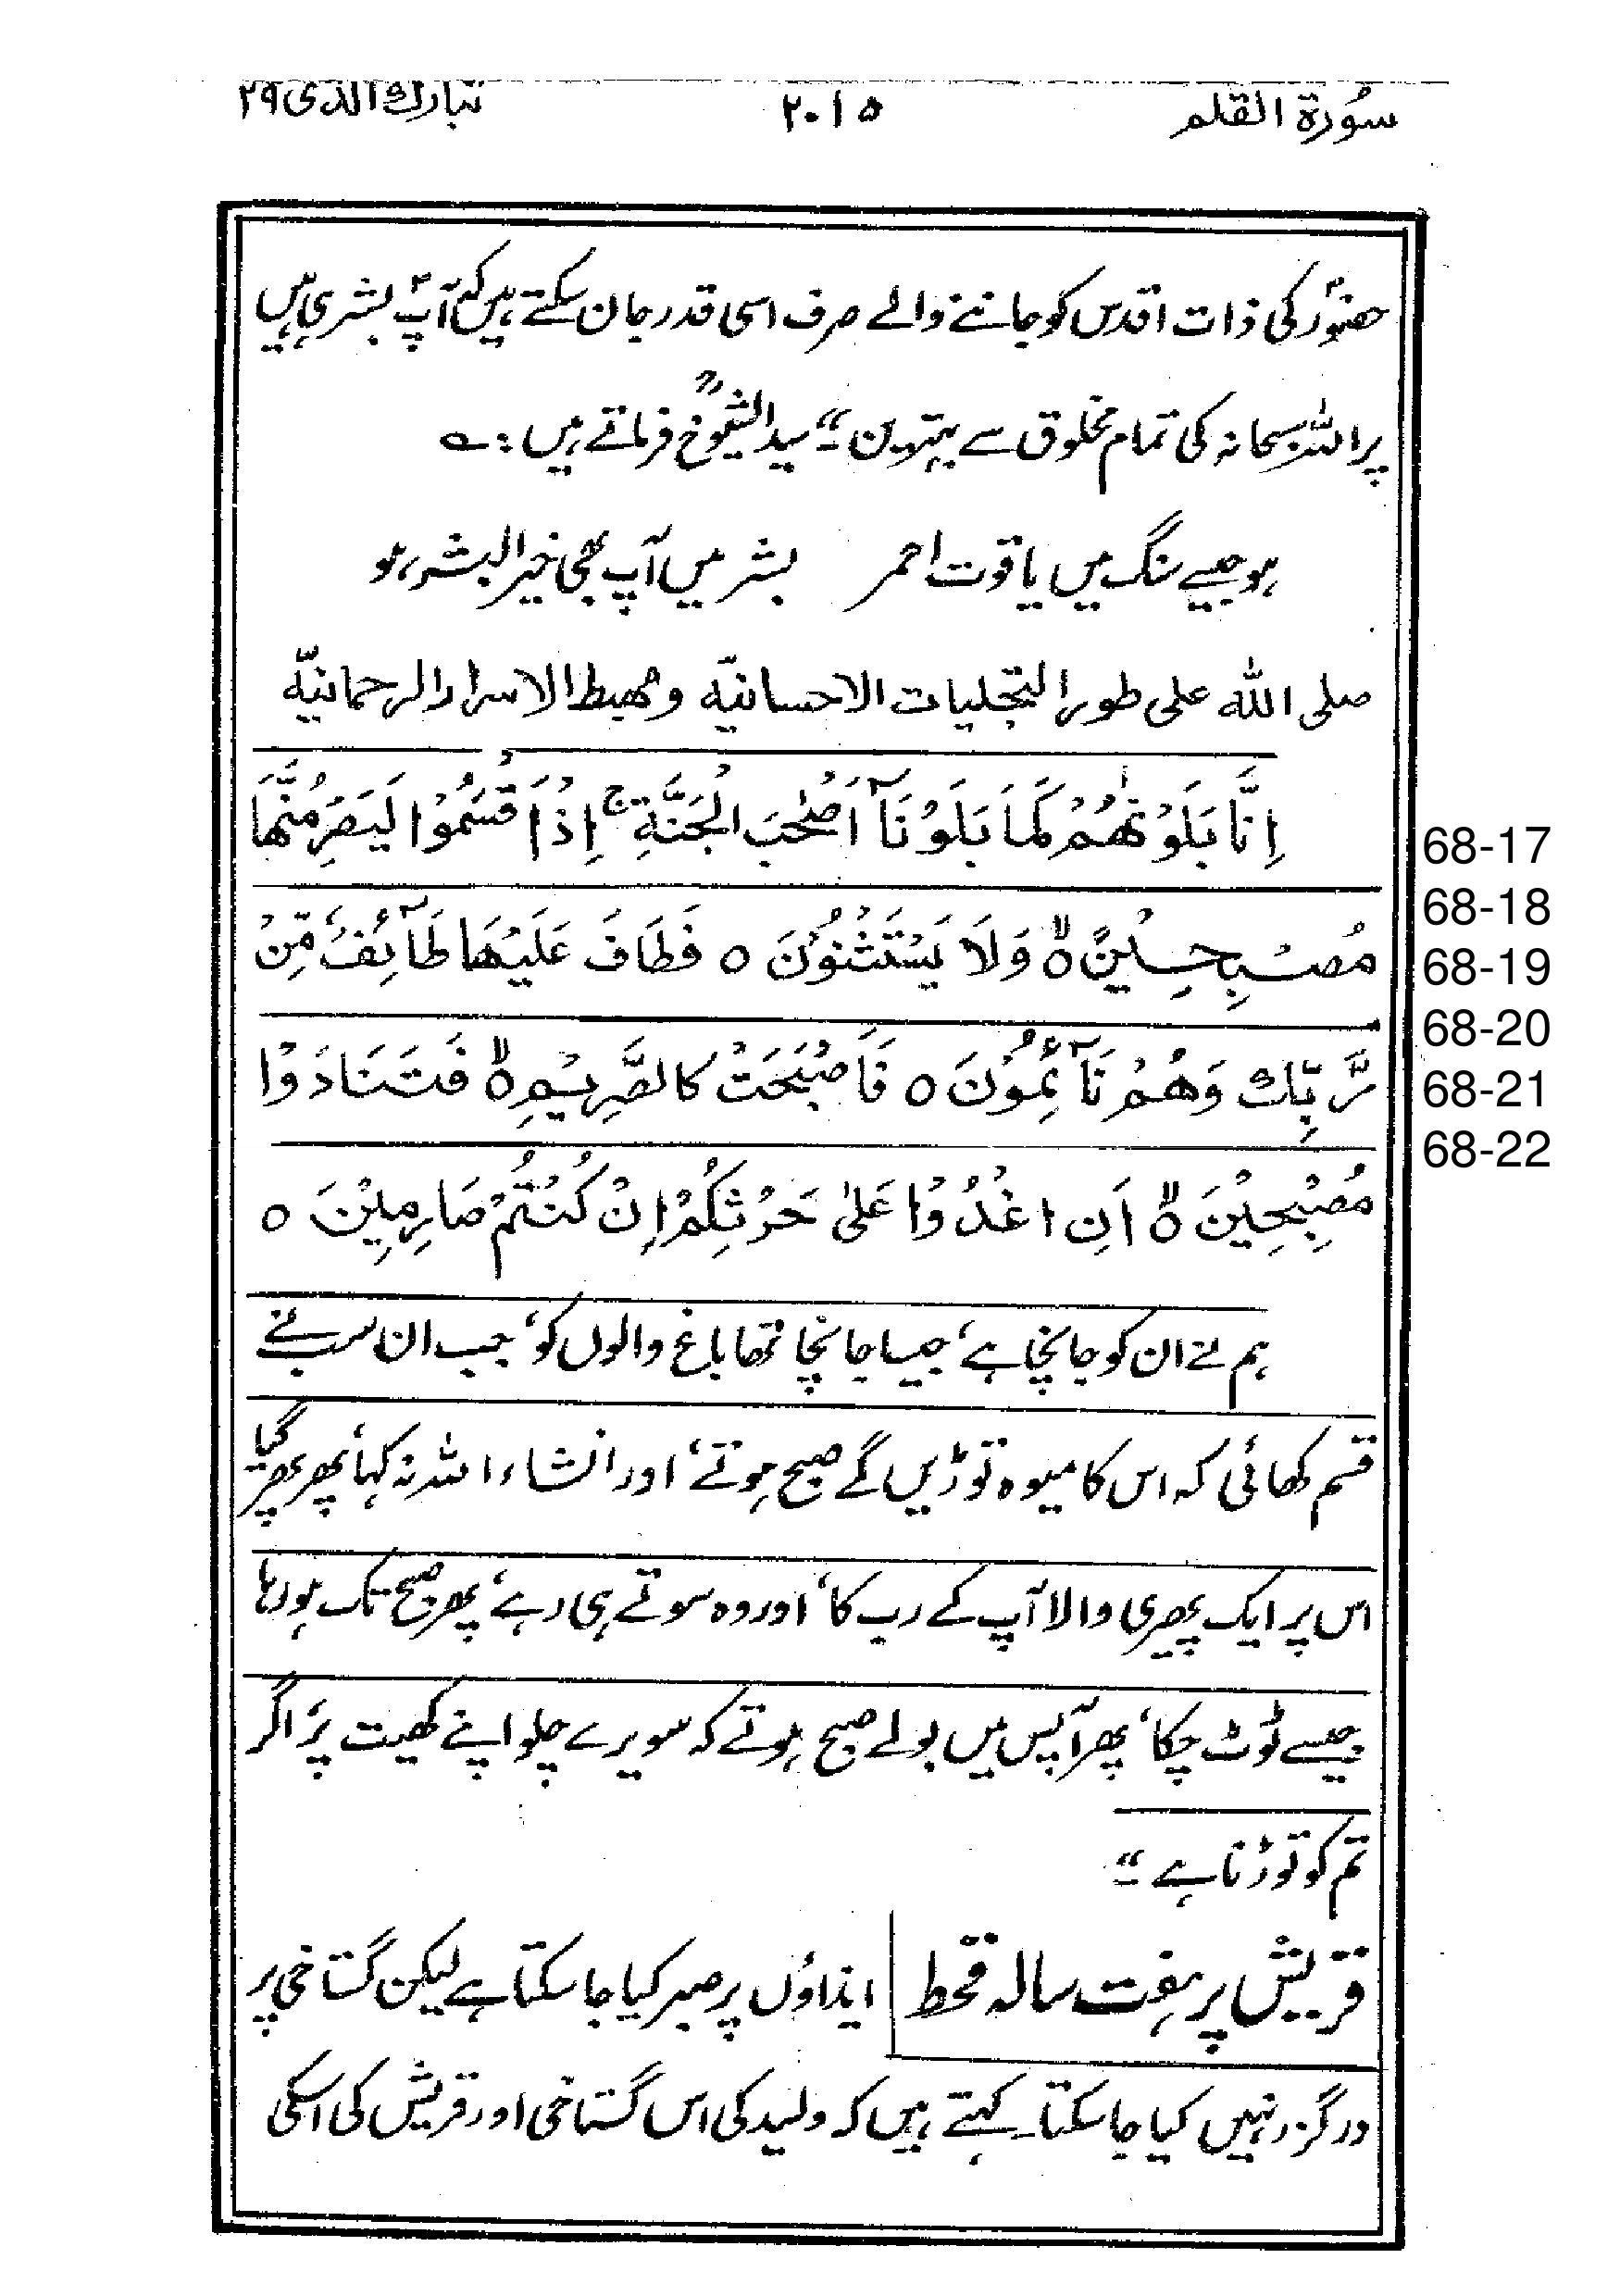 سُورۃ القلم ۲۰۱۵ تبارك الذی ۲۹
حضورؐ کی ذات اقدس کو جاننے والے صرف اسی قدر جان سکتے ہیں کہ آپؐ بشر ہی ہیں
پر اللہ سبحانہ کی تمام مخلوق سے بہترین ۔“ سید الشیوخؒ فرماتے ہیں :۔
ہو جیسے سنگ میں یاقوت احمر بشر میں آپ بھی خیر البشر ہو
صلی اللہ علی طور التجلیات الاحسانیّہ و مہبط الاسرار الرحمانیّہ
اِنَّا بَلَوْنٰهُمْ كَمَا بَلَوْنَآ اَصْحٰبَ الْجَنَّةِ ۚ اِذْ اَقْسَمُوْا لَيَصْرِمُنَّهَا
68-17
مُصْبِحِيْنَ ۝ۙ وَلَا يَسْتَثْنُوْنَ ۝ فَطَافَ عَلَيْهَا طَآئِفٌ مِّنْ
68-18
68-19
رَّبِّكَ وَهُمْ نَآئِمُوْنَ ۝ فَاَصْبَحَتْ كَالصَّرِيْمِ ۝ۙ فَتَنَادَوْا
68-20
68-21
مُصْبِحِيْنَ ۝ۙ اَنِ اغْدُوْا عَلٰى حَرْثِكُمْ اِنْ كُنْتُمْ صَارِمِيْنَ ۝
68-22
ہم نے ان کو جانچا ہے، جیسا جانچا تھا باغ والوں کو، جب ان سب نے
قسم کھائی کہ اس کا میوہ توڑیں گے صبح ہوتے، اور انشاء اللہ نہ کہا، پھر پھر گیا
اس پر ایک پھیری والا آپ کے رب کا، اور وہ سوتے ہی رہے، پھر صبح تک ہو رہا
جیسے ٹوٹ چکا، پھر آپس میں بولے صبح ہوتے کہ سویرے چلو اپنے کھیت پر، اگر
تم کو توڑنا ہے ۔“
قریش پر ہفت سالہ قحط ایذاؤں پر صبر کیا جا سکتا ہے لیکن گستاخی پر
درگزر نہیں کیا جا سکتا۔ کہتے ہیں کہ ولید کی اس گستاخی اور قریش کی اسکی